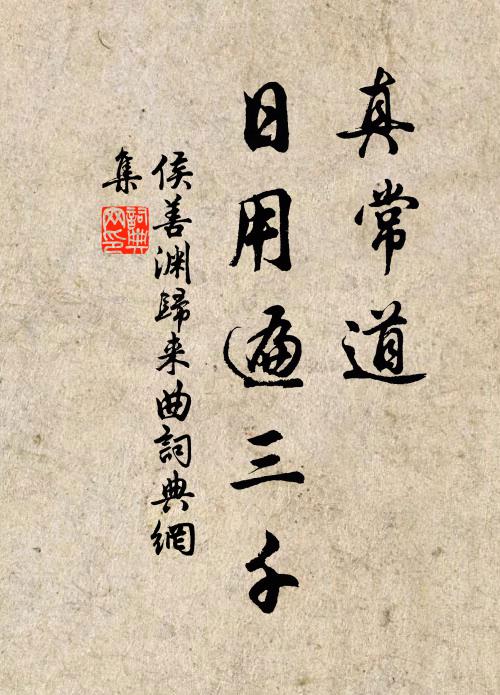 真常道
日用遍三千
侯善渊歸来曲詞典網
集
詞典
网印